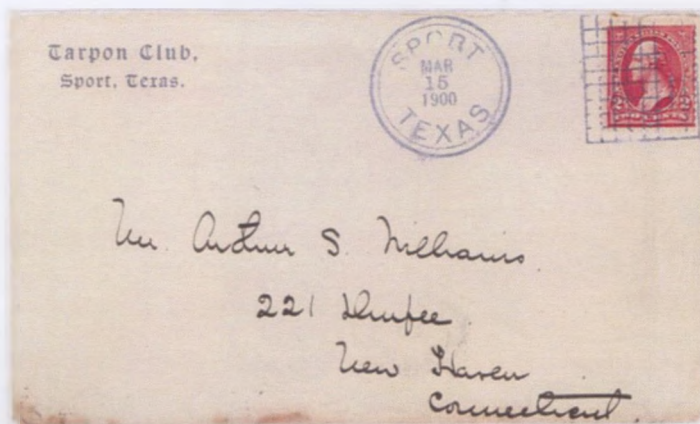 Tarpon Club,
Sport, Texas.
SPORT
MAR
15
1900
TEXAS
2 2
Mr. Arthur S. Williams
221 Durfee
New Haven
Connecticut.